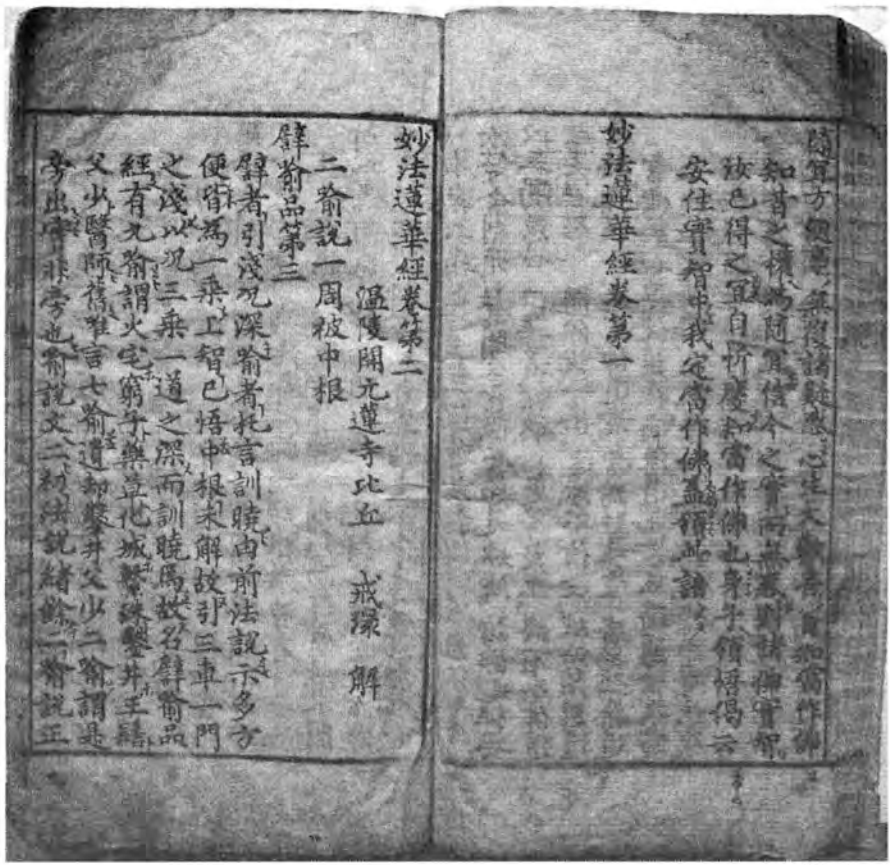 隨宜方便事無復諸疑惑心生大歡喜自知當作佛
知昔之權為隨宜信今之實而無惑對諸佛實智
汝已得之宜自忻慶知當作佛也身子領悟偈云
安住實智中我定當作佛盖領此諸
妙法蓮華經卷第一
妙法蓮華經卷第二
溫陵開元蓮寺比丘 戒環 解
二喻說一周被中根
譬喻品第三
譬者引淺况深喻者托言訓曉由前法說示多方
便皆爲一乘上智已悟中根未解故引三車一門
之淺以况三乘一道之深而訓曉焉故名譬喻品
經有九喻謂火宅窮子藥草化城繫珠鑿井王髻
父少醫師舊唯言七喻遺却鑿井父少二喻謂是
旁出實非旁也喻說文二初法說緒餘二喻說正